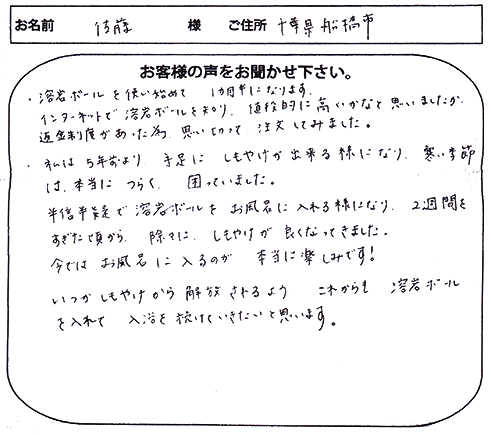 お名前 佐藤 様 ご住所 千葉県船橋市
お客様の声をお聞かせ下さい。
・溶岩ボールを使い始めて 1カ月半になります。
インターネットで溶岩ボールを知り、値段的に高いかなと思いましたが、
返金制度があった為、思い切って注文してみました。
・私は5年前より、手足にしもやけが出来る様になり、寒い季節
は、本当につらく、困っていました。
半信半疑で溶岩ボールをお風呂に入れる様になり、2週間を
すぎた頃から、除々に、しもやけが良くなってきました。
今ではお風呂に入るのが本当に楽しみです!
いつかしもやけから解放されるよう これからも 溶岩ボール
を入れて入浴を続けていきたいと思います。